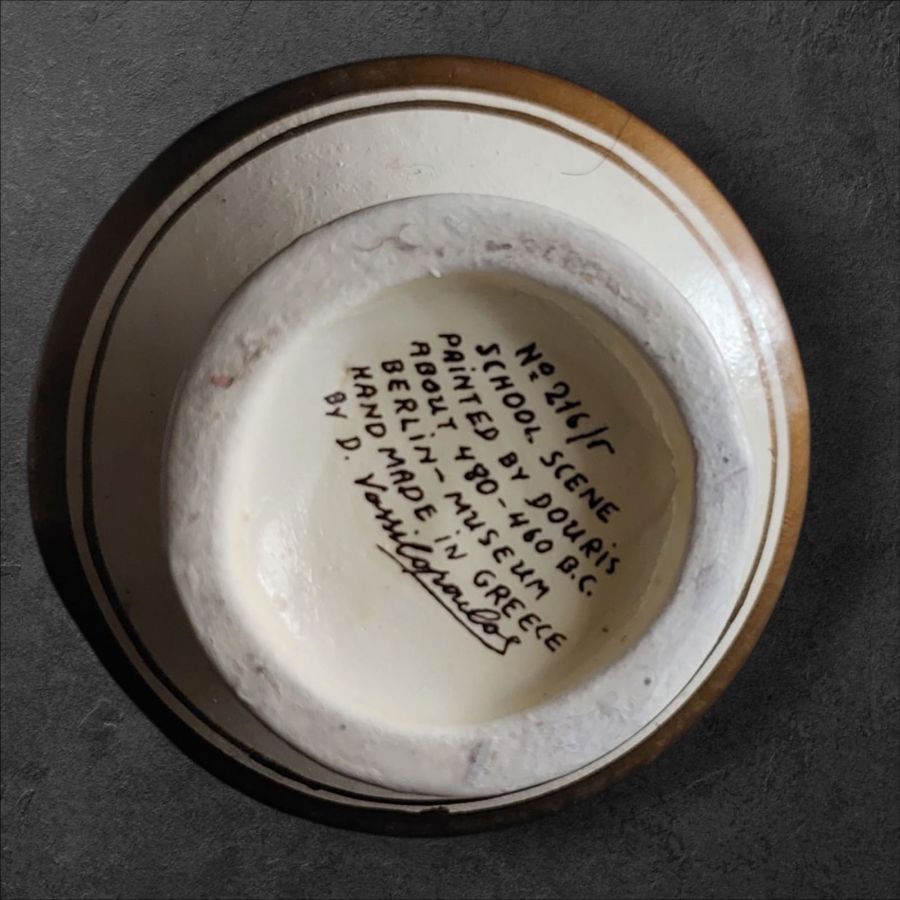 Nº 216/Γ
SCHOOL SCENE
PAiNTED BY DOURiS
ABOUT 480-460 B.C.
BERLiN-MUSEUM
HAND MADE iN GREECE
BY D. Vassilopoulos